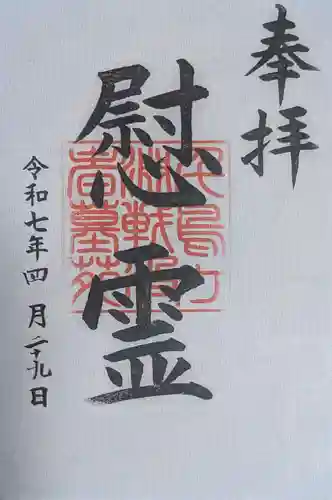 奉拝
慰霊
令和七年四月二十九日